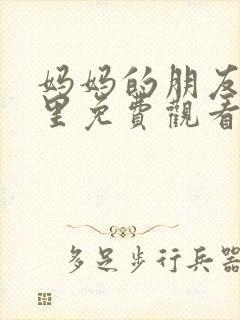 妈妈的朋友
里免費觀看
多足步行兵器